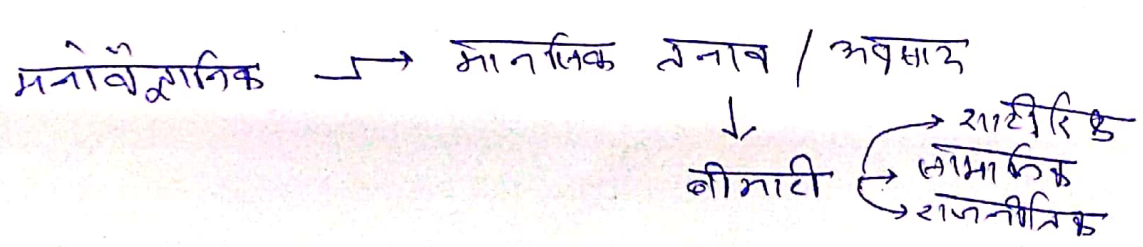 मनोवैज्ञानिक → मानसिक तनाव / अवसाद
↓
बीमारी → शारीरिक
→ सामाजिक
→ राजनीतिक